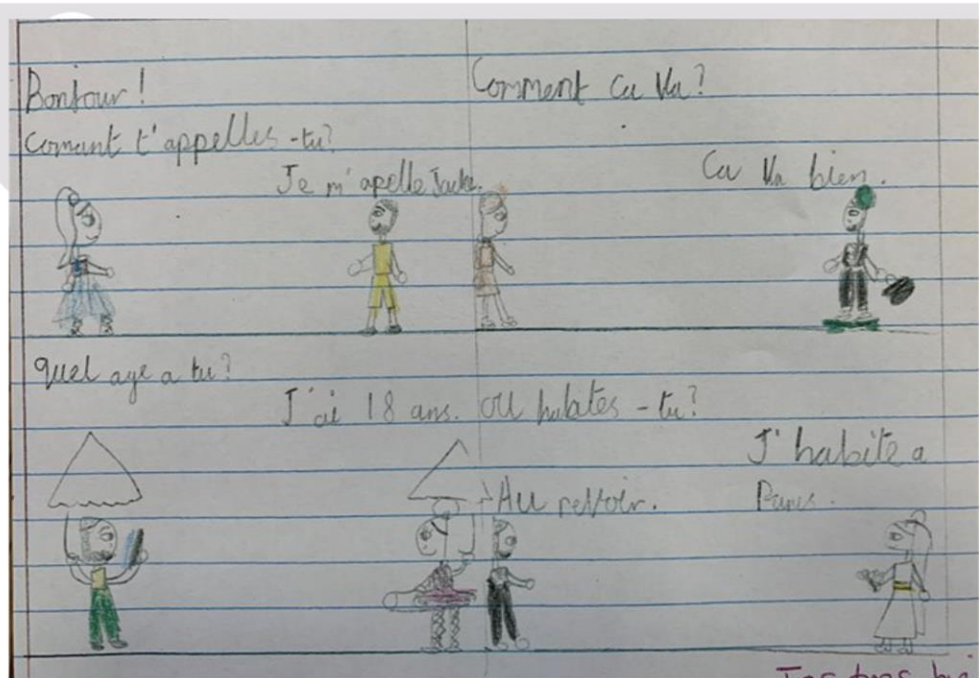 Bonjour!
Comant t'appelles-tu?
Je m'apelle
Comment Ca Va?
Ca Va bien.
quel age a tu?
J'ai 18 ans.
ou habites-tu?
J'habite a
Paris.
Au revoir.